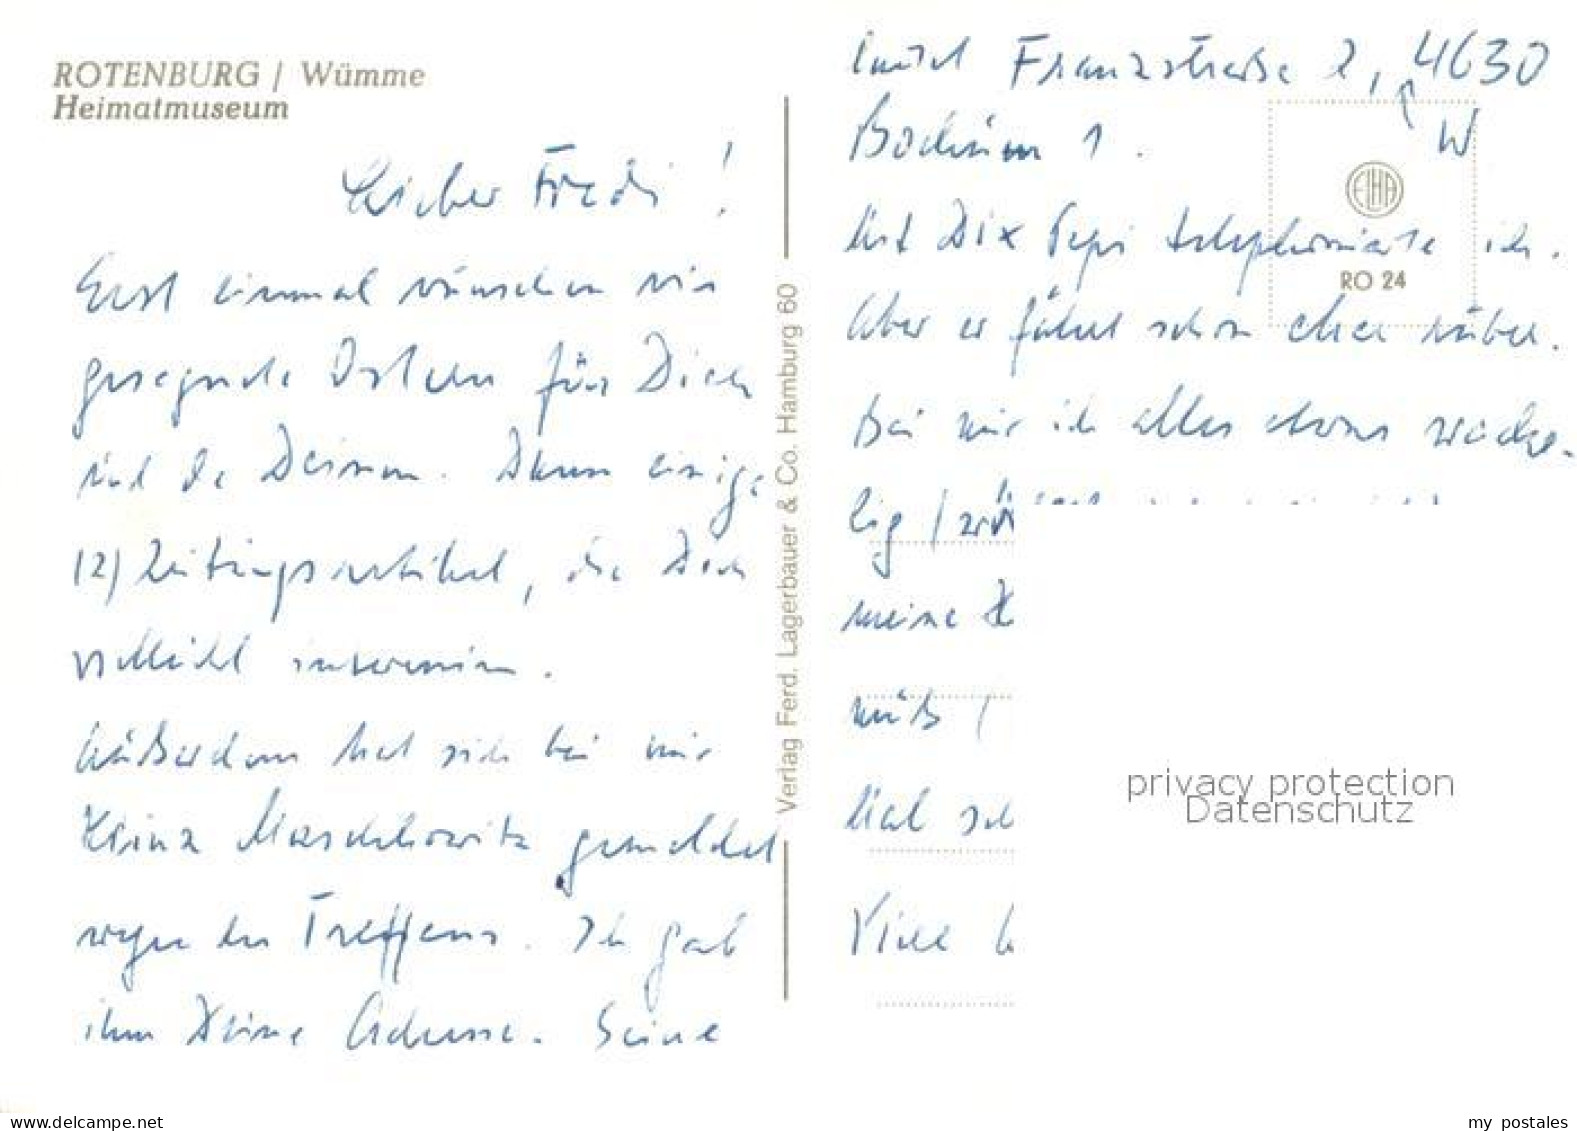 ROTENBURG / Wümme
Heimatmuseum
Lieber Fredi!
Erst einmal wünschen wir
gesegnete Ostern für Dich
und die Deinen. Dann einige
(2) Zeitungsartikel, die Dich
vielleicht interessieren.
Außerdem hat sich bei mir
Heinz gemeldet
wegen des Treffens. Ich gab
ihm Deine Adresse. Seine
Verlag Ferd. Lagerbauer & Co. Hamburg 60
lautet Franzstraße 2, 4630
Bochum 1. W
Mit Pepi telephonierte ich.
Aber er fährt schon eher rüber.
Bei mir ist alles etwas wacke-
lig
meine
muß (
Mal
Viele
ELHA
RO 24
privacy protection
Datenschutz
my postales